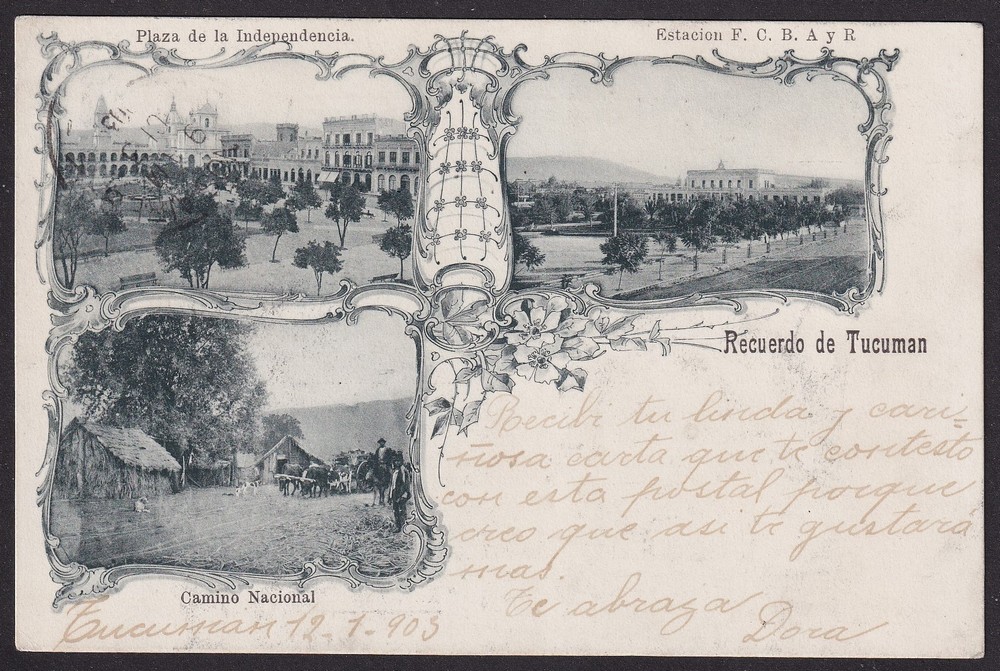 Plaza de la Independencia.
Estacion F. C. B. A y R
Recuerdo de Tucuman
Recibi tu linda y cari-
ñosa carta que te contesto
con esta postal porque
creo que asi te gustara
mas.
Te abraza
Dora
Camino Nacional
Tucuman 12-1-903